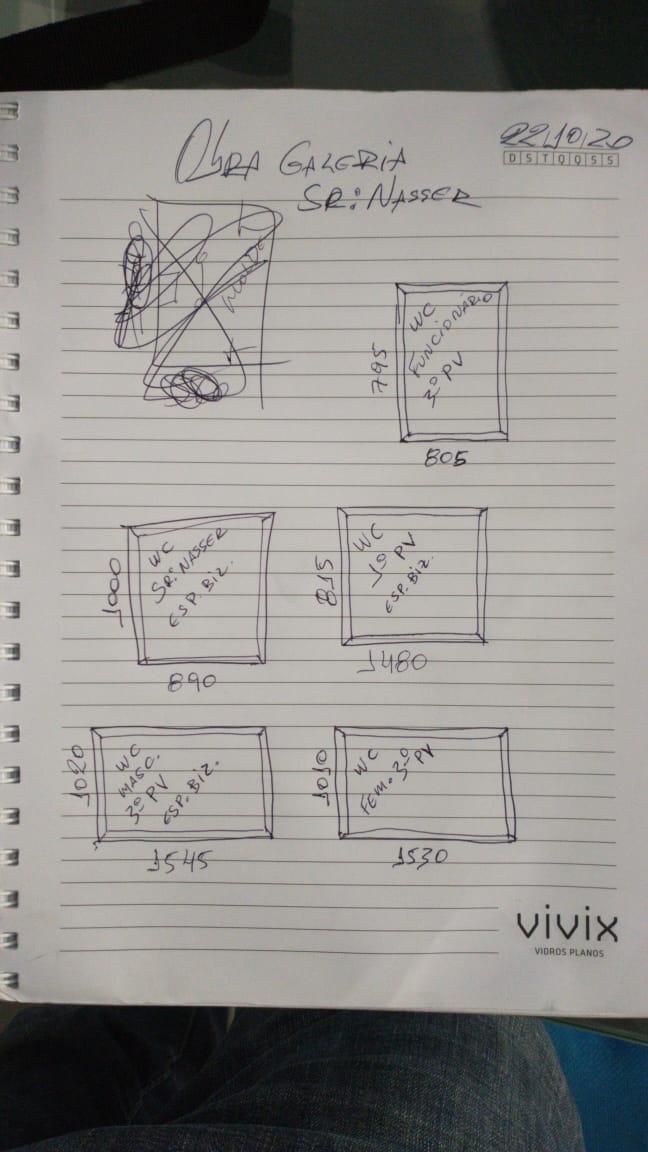 22/10/20
D S T Q Q S S
OBRA GALERIA
SR: NASSER
WC
FUNCIONÁRIO
3º PV
795
805
WC
SR: NASSER
ESP. BIZ.
1000
890
WC
1º PV
ESP. BIZ.
815
1480
WC
MASC.
3º PV
ESP. BIZ.
1020
1545
WC
FEM. 3º PV
1010
1530
vivix
VIDROS PLANOS